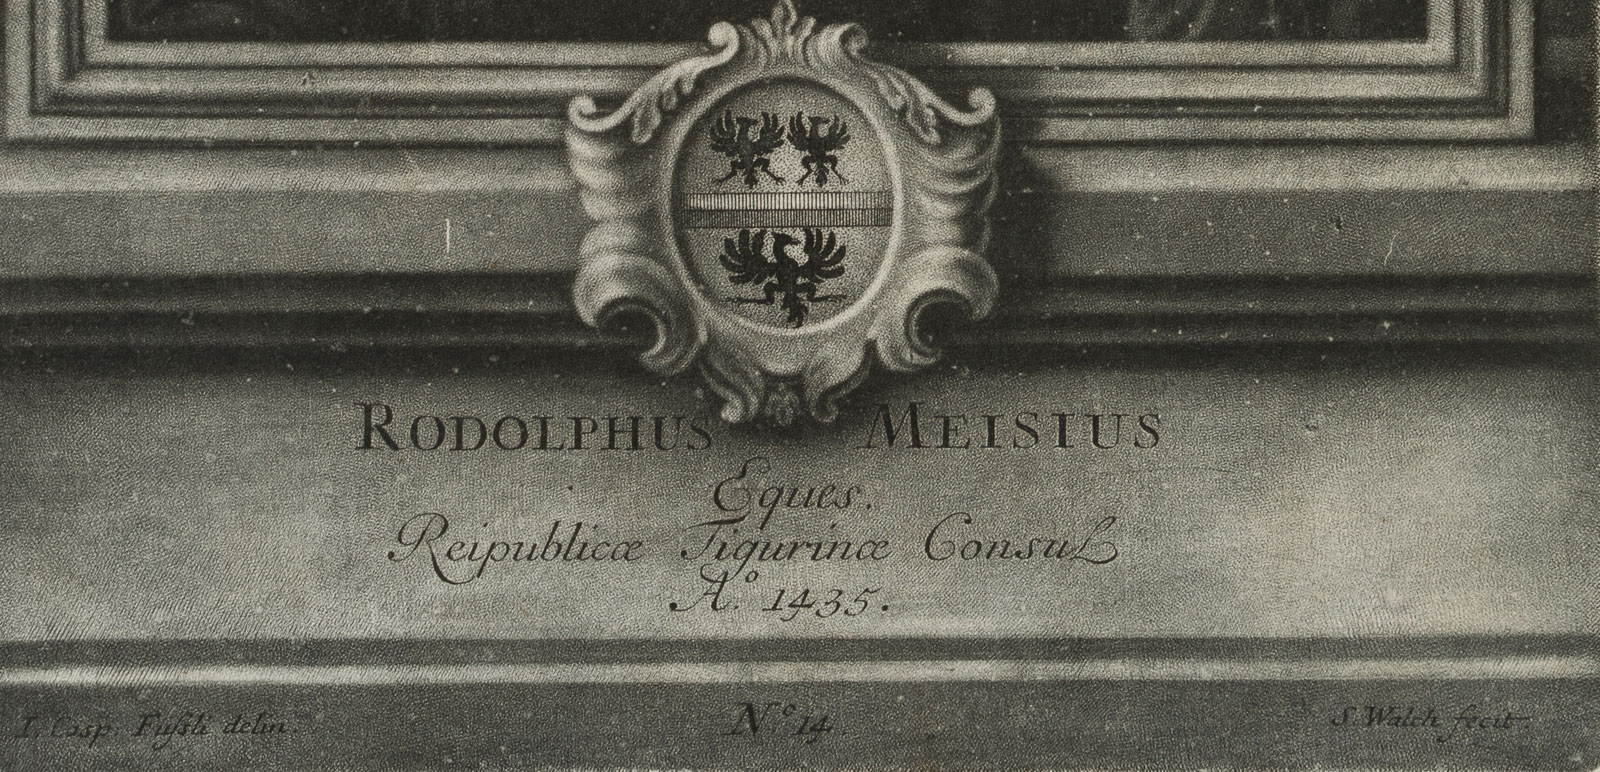 RODOLPHUS MEISIUS
Eques.
Reipublicæ Tigurinæ Consul
Aº. 1435.
I. Casp: Füßli delin. Nº 14. S. Walch fecit.